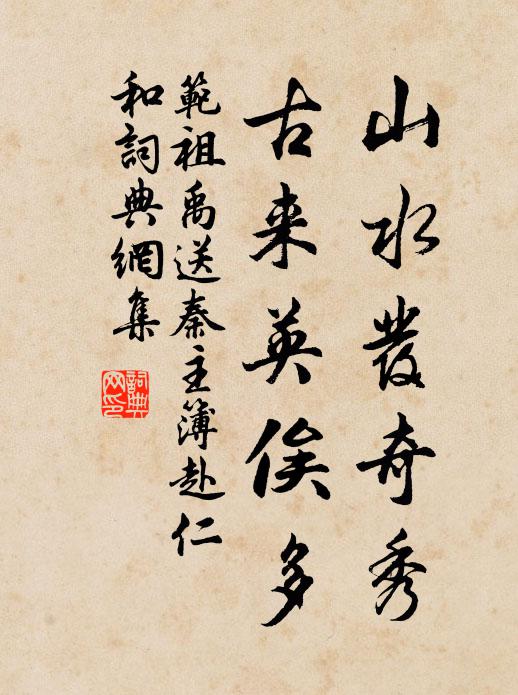 山水發奇秀
古来英俟多
範祖禹送秦主簿赴仁
和詞典網集
詞典
网印